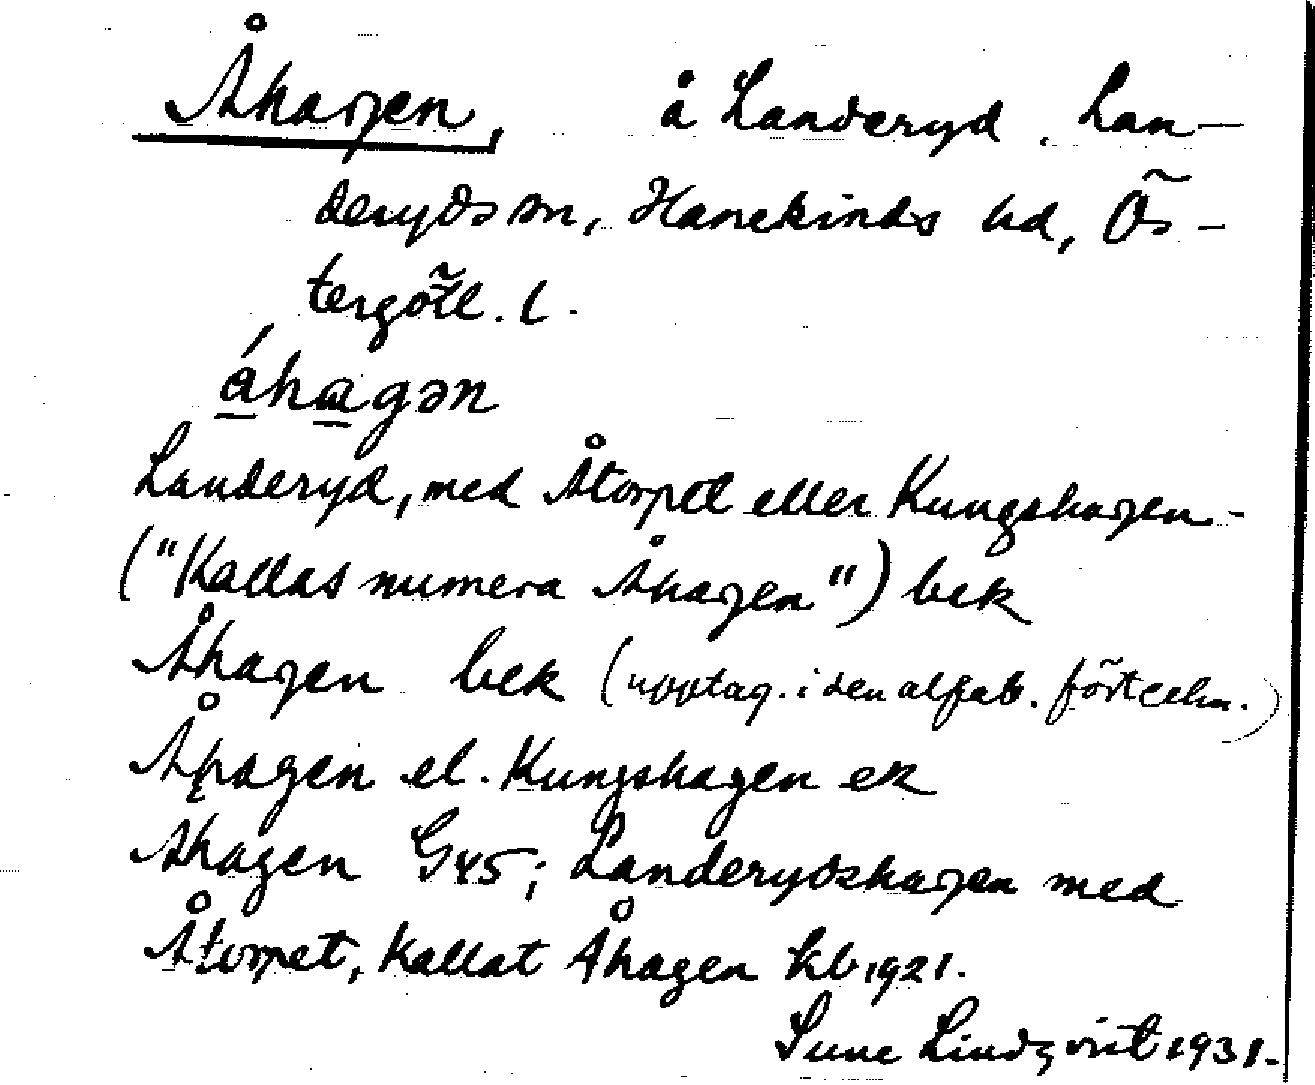 Åhagen, å Landeryd, Lan-
deryds sn, Hanekinds hd, Ös-
tergötl. l.
áhagən
Landeryd, med Åtorpet eller Kungshagen -
("Kallas numera Åhagen") bek
Åhagen bek (upptag. i den alfab. förteckn.)
Åhagen el. Kungshagen ek
Åhagen G45; Landerydshagen med
Åtorpet, kallat Åhagen kb 1921.
Sune Lindqvist 1931.